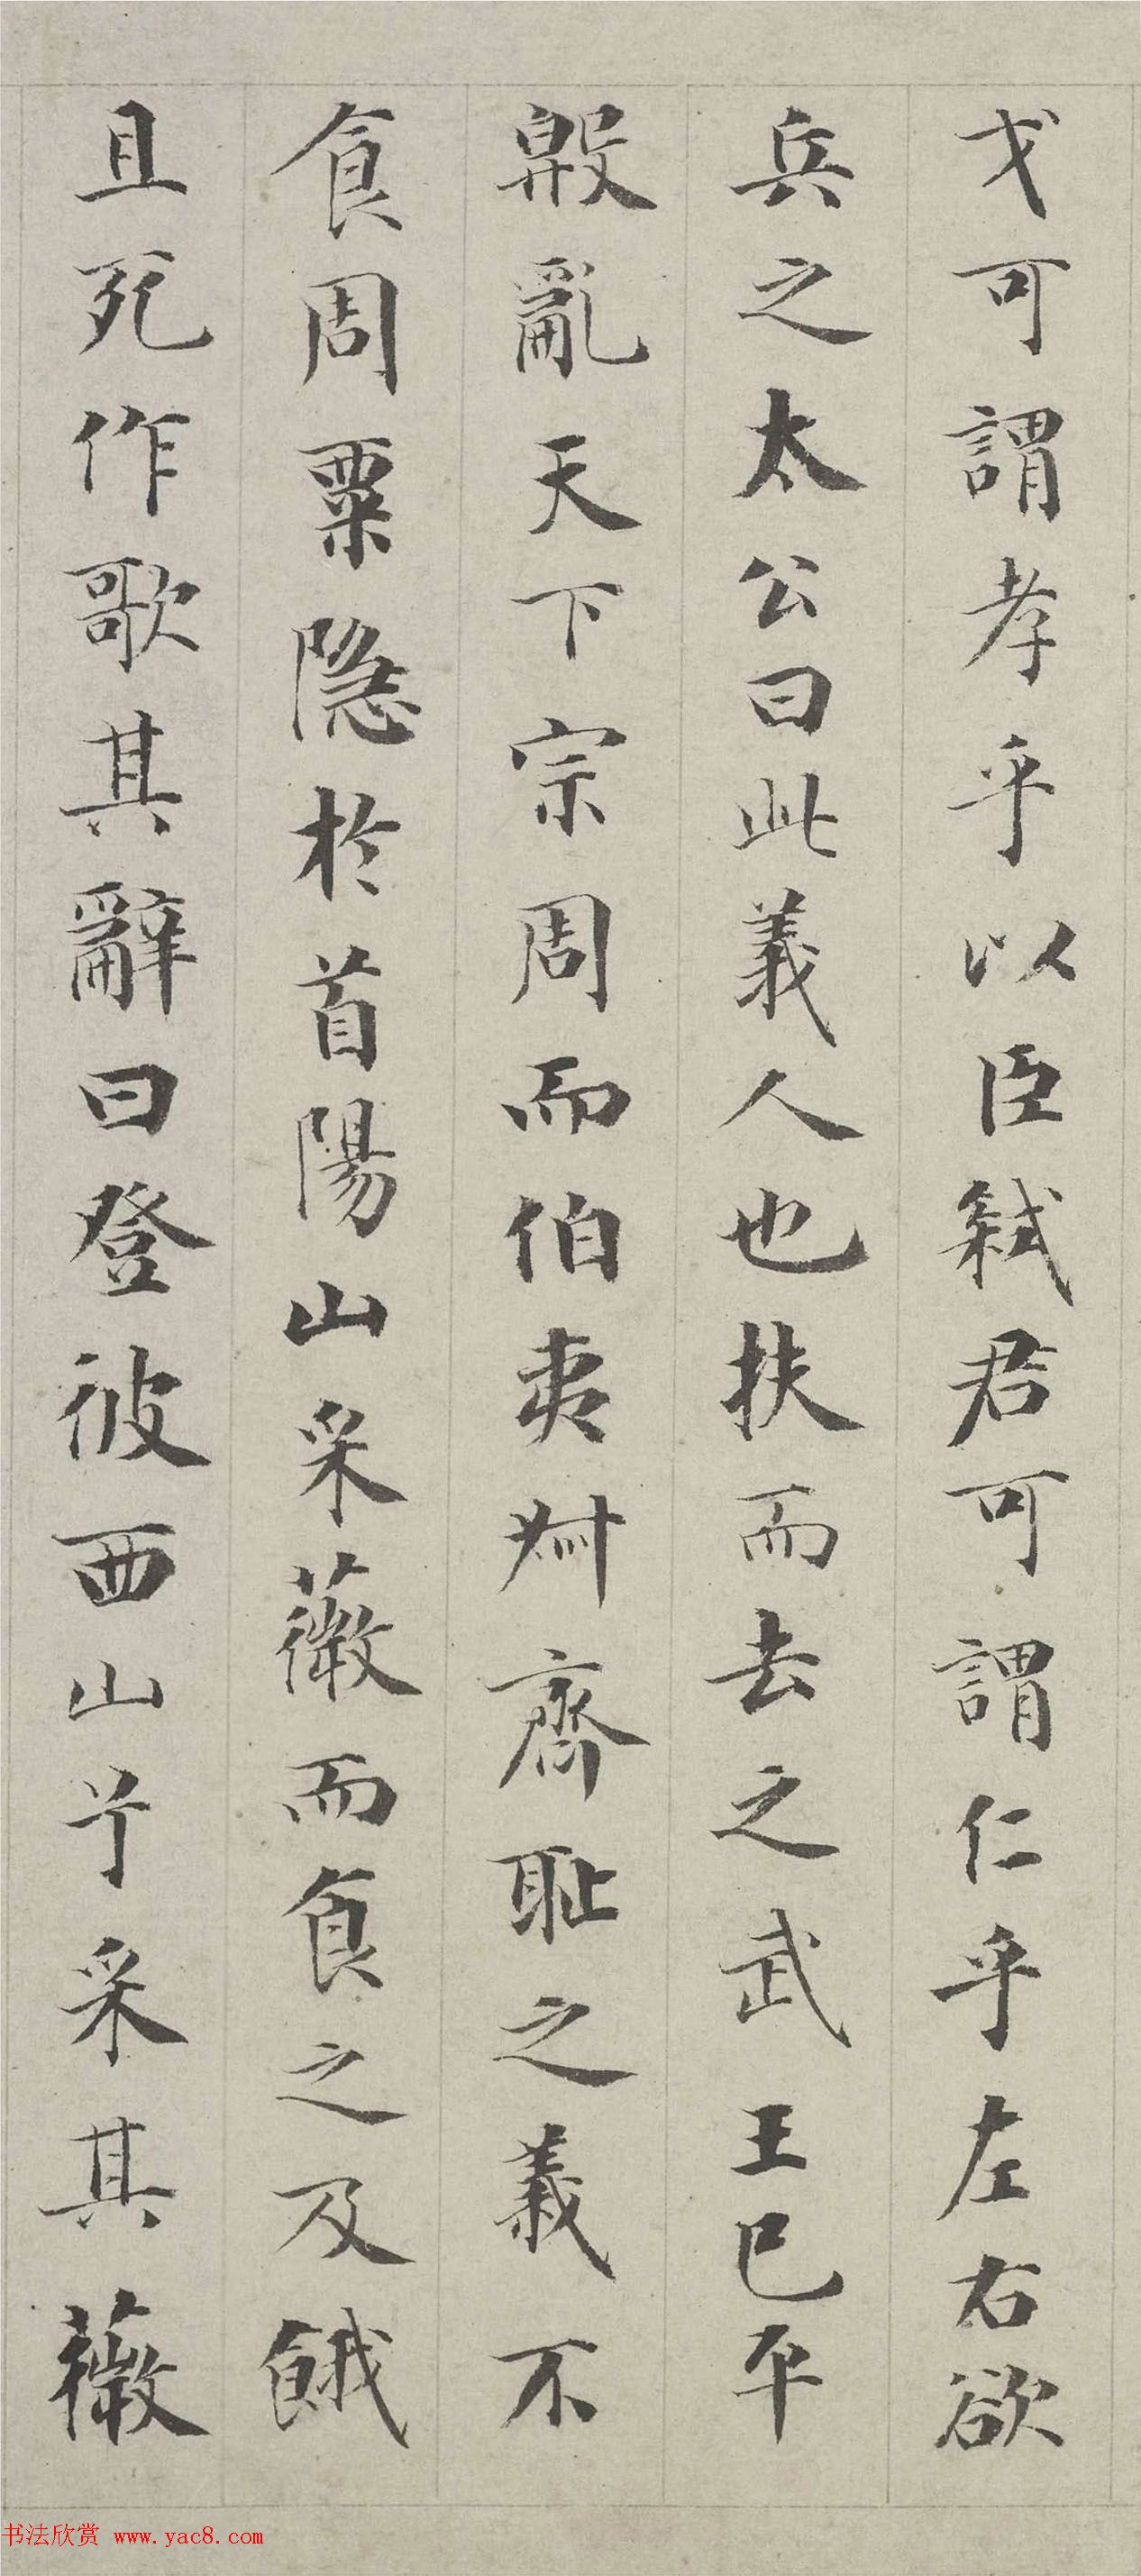 戈可謂孝乎以臣弒君可謂仁乎左右欲
兵之太公曰此義人也扶而去之武王已平
殷亂天下宗周而伯夷叔齊恥之義不
食周粟隱於首陽山采薇而食之及餓
且死作歌其辭曰登彼西山兮采其薇
书法欣赏 www.yac8.com